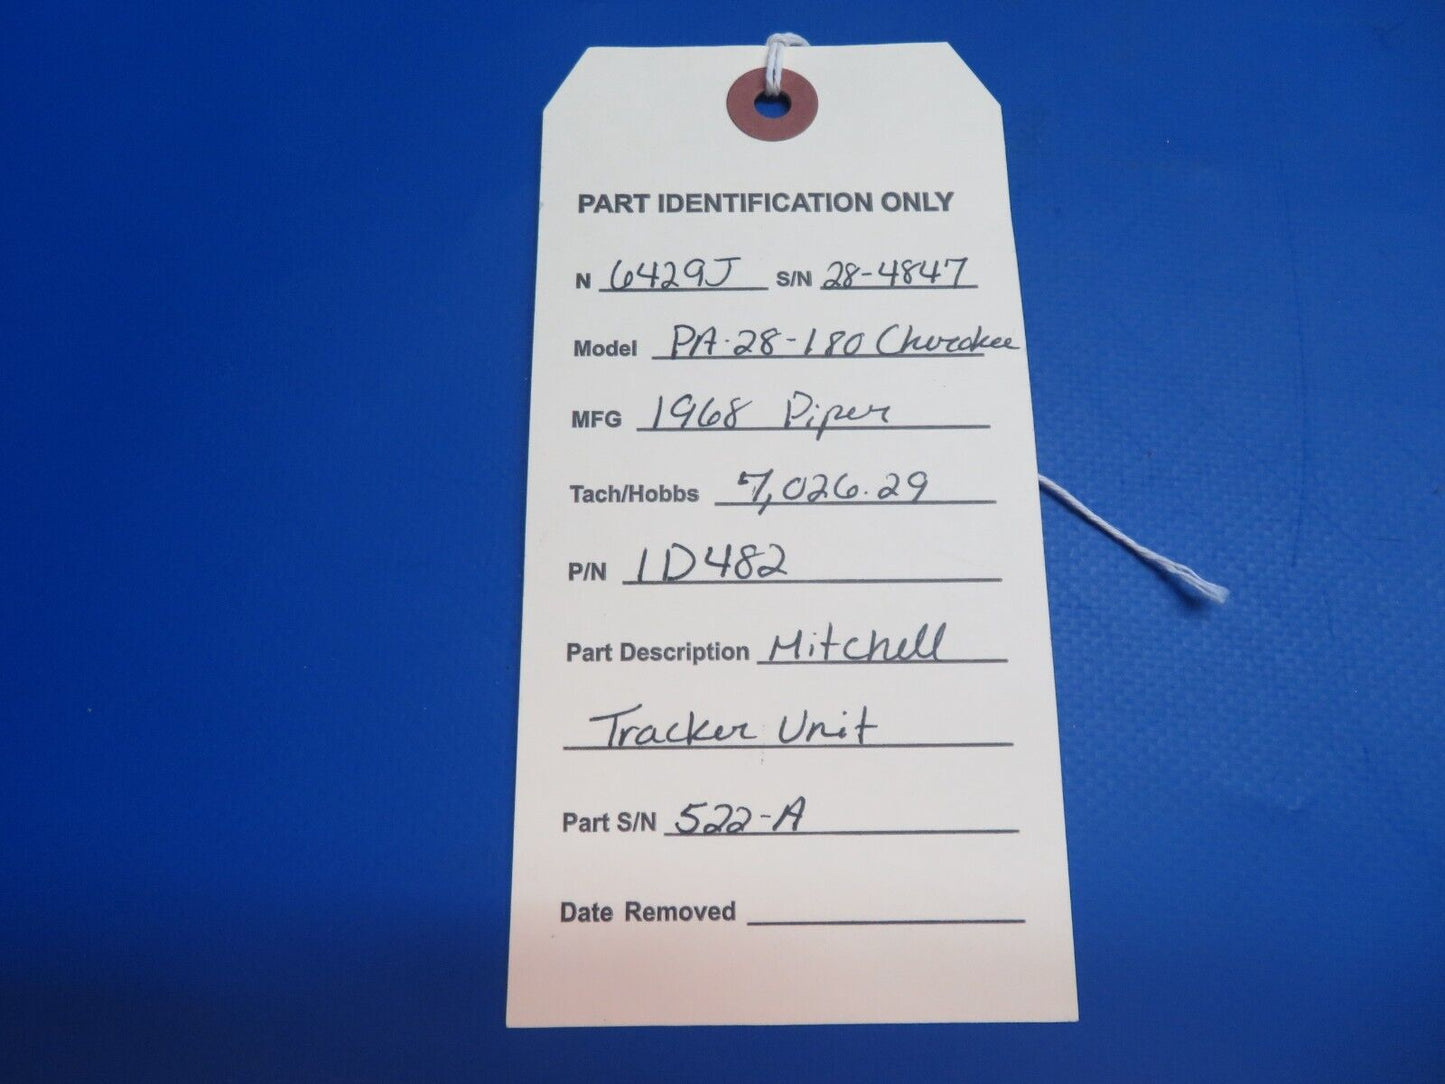 PART IDENTIFICATION ONLY
N 6429J S/N 28-4847
Model PA-28-180 Cherokee
MFG 1968 Piper
Tach/Hobbs 7,026.29
P/N 1D482
Part Description Mitchell
Tracker Unit
Part S/N 522-A
Date Removed